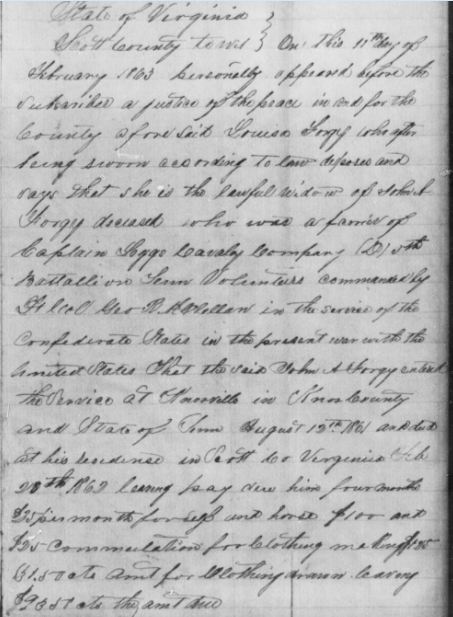 State of Virginia }
Scott County to wit } On this 11th day of
February 1863 personally appeared before the
subscriber a justice of the peace in and for the
County afore said Louisa Forgy who after
being sworn according to law deposes and
says that she is the lawful widow of John A
Forgy deceased who was a farrier of
Captain Leggs Cavalry Company (D) 5th
Battallion Tenn Volunteers commanded by
Lt Col Geo R McClellan in the service of the
Confederate States in the present war with the
United States That the said John A Forgy entered
the service at Knoxville in Knox County
and State of Tenn August 12th 1861 and died
at his residense in Scott Co Virginia Feb
28th 1862 leaving pay due him four months
$25 per month for self and horse $100 and
$25 commutation for Clothing making $125
$31.50 cts amt for Clothing drawn leaving
$93.50 cts the amt due